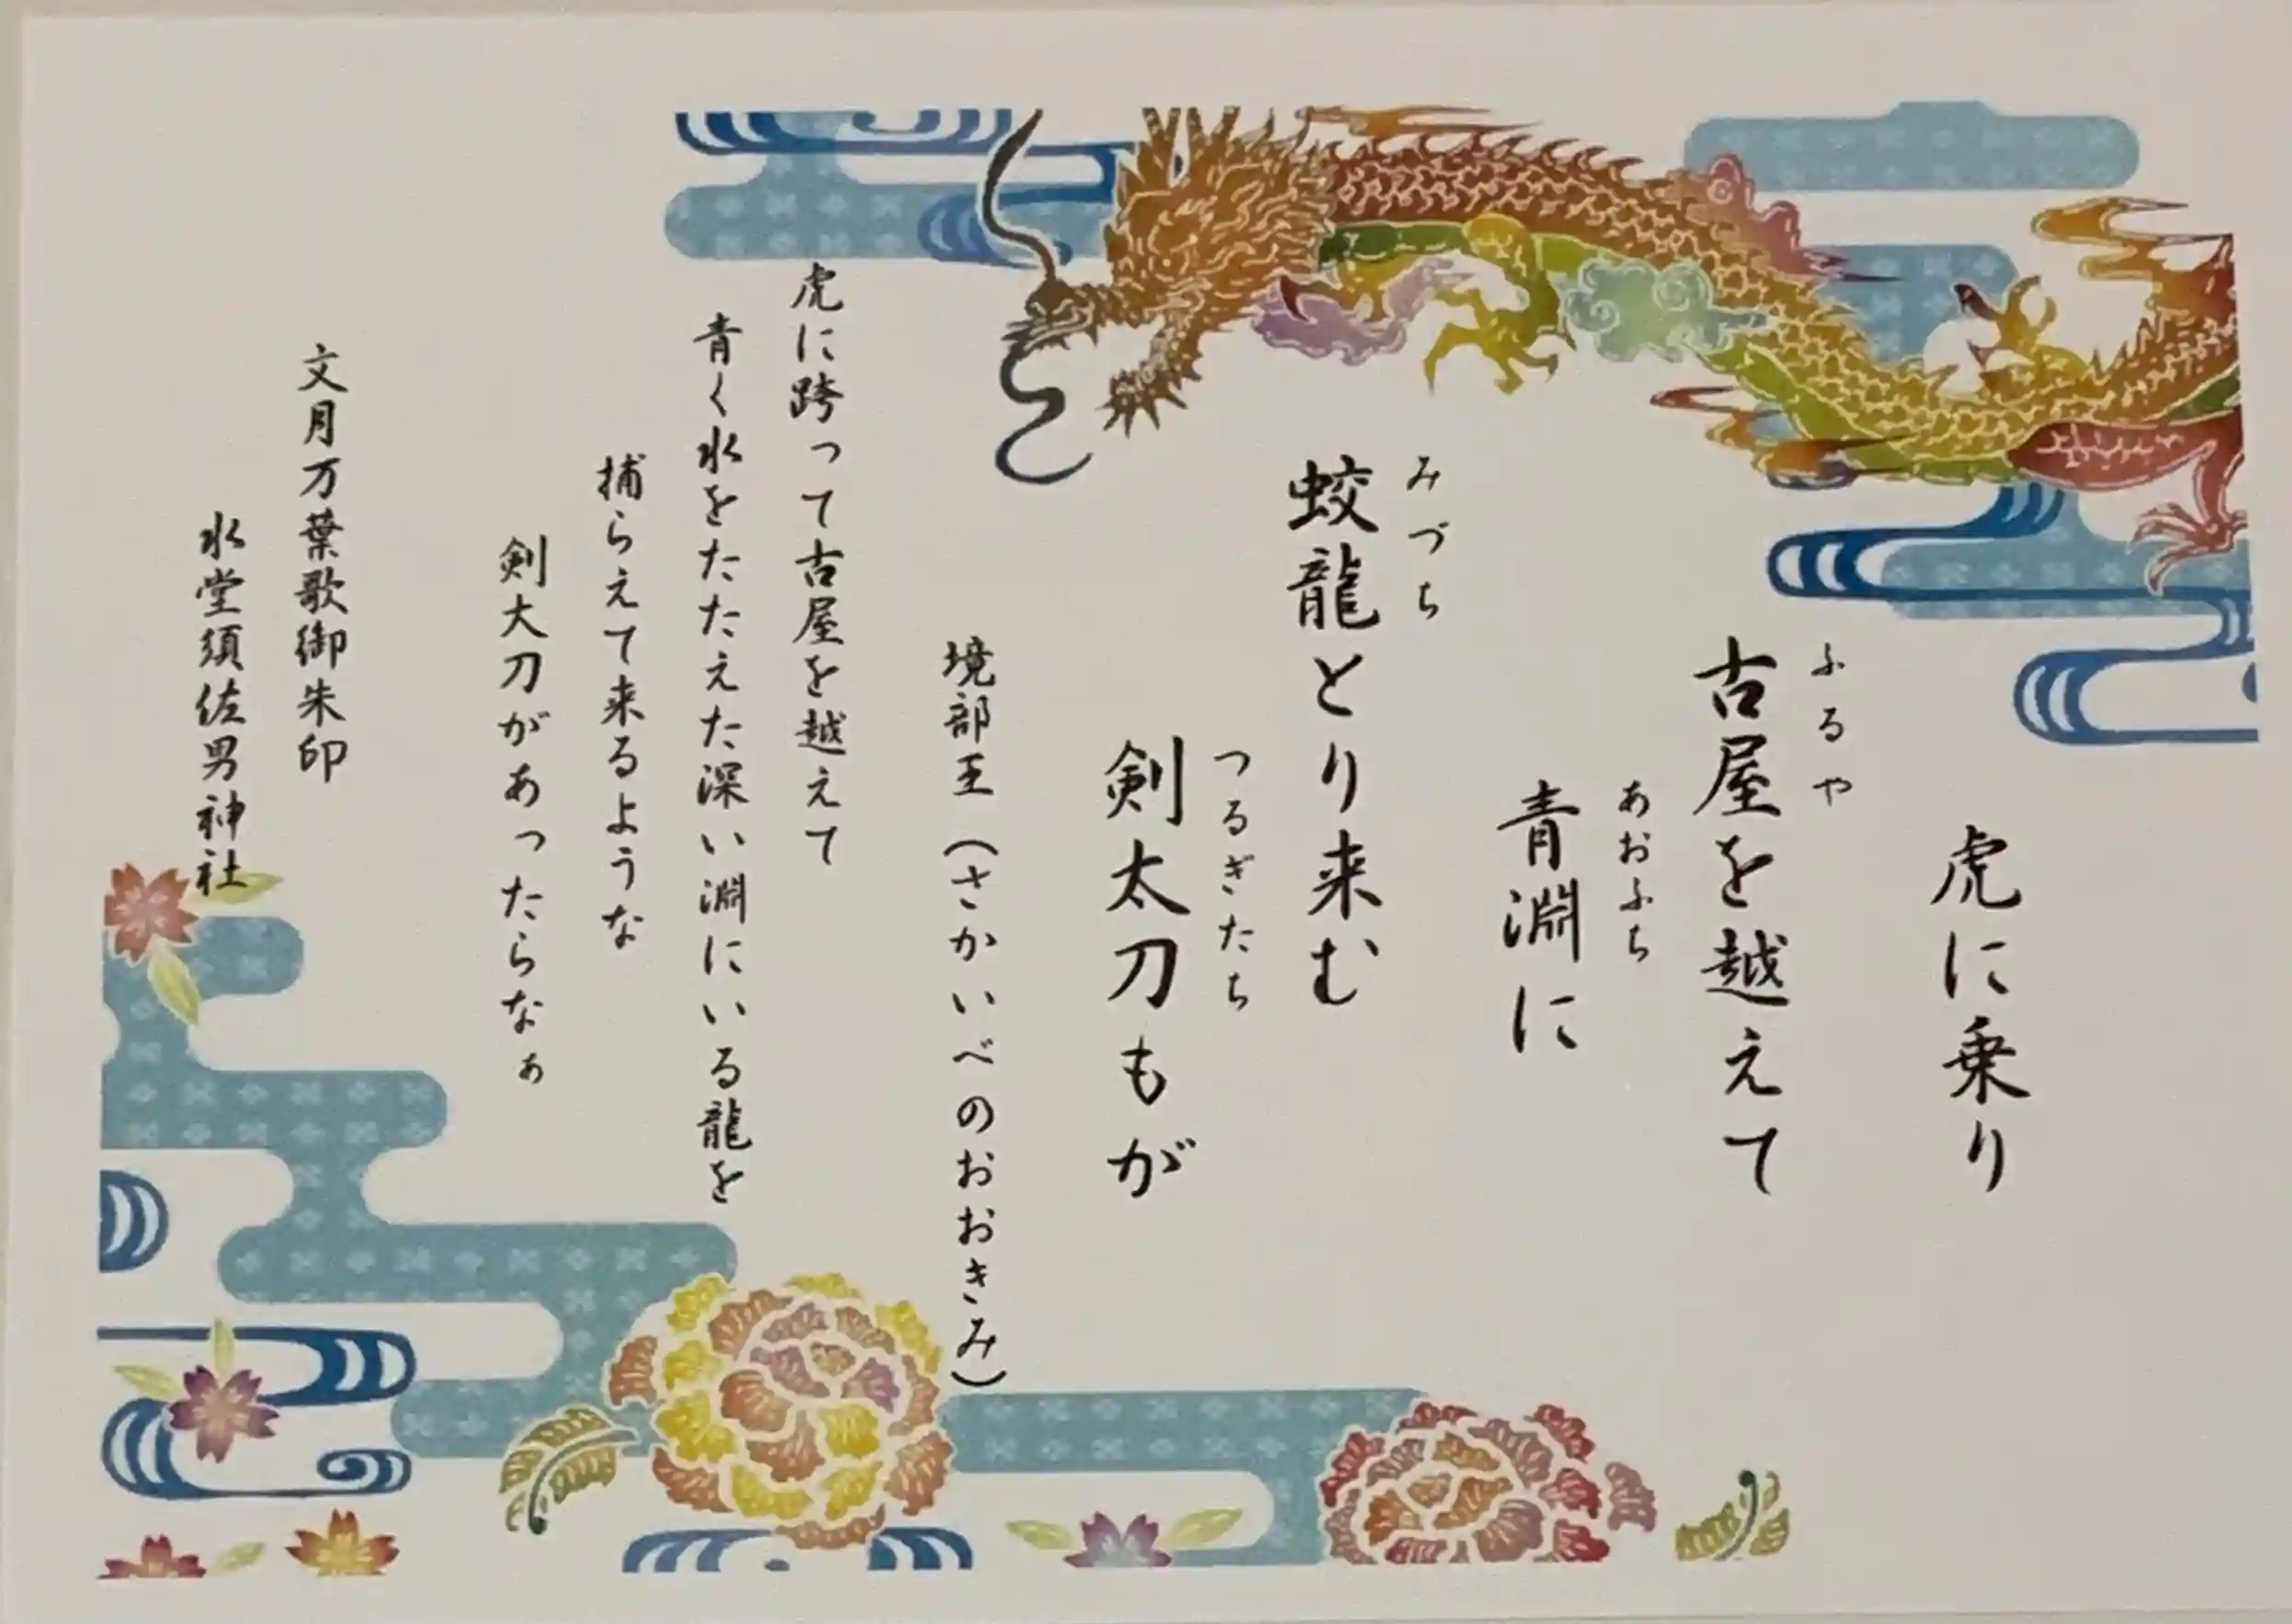 虎に乗り
ふるや
古屋を越えて
あおふち
青淵に
みづち
蛟龍とり来む
つるぎたち
剣太刀もが
境部王(さかいべのおおきみ)
虎に跨って古屋を越えて
青く水をたたえた深い淵にいる龍を
捕らえて来るような
剣大刀があったらなぁ
文月万葉歌御朱印
水堂須佐男神社